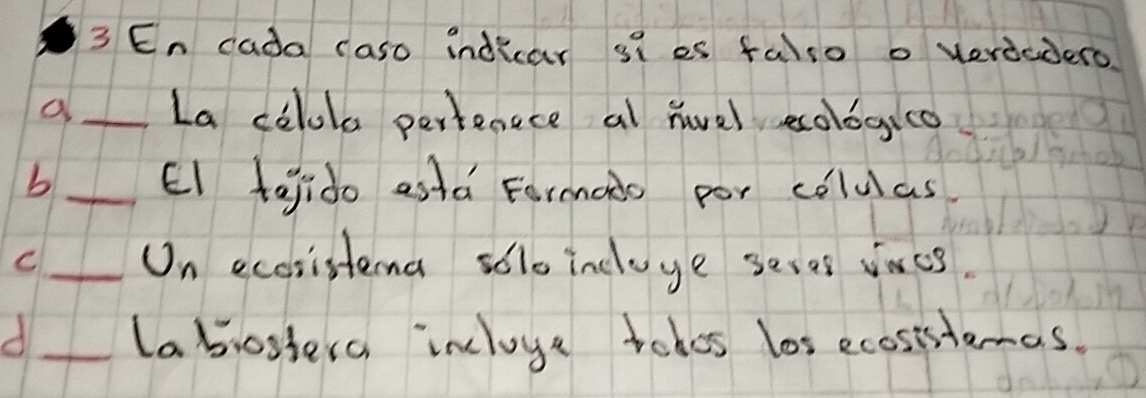 3 En cada caso indicar si es falso o verdadero.
a__ La célula pertenece al nivel ecológico.
b__ El tejido está Formado por células.
c__ Un ecosistema sólo incluye seres vivos.
d__ La biosfera incluye todos los ecosistemas.